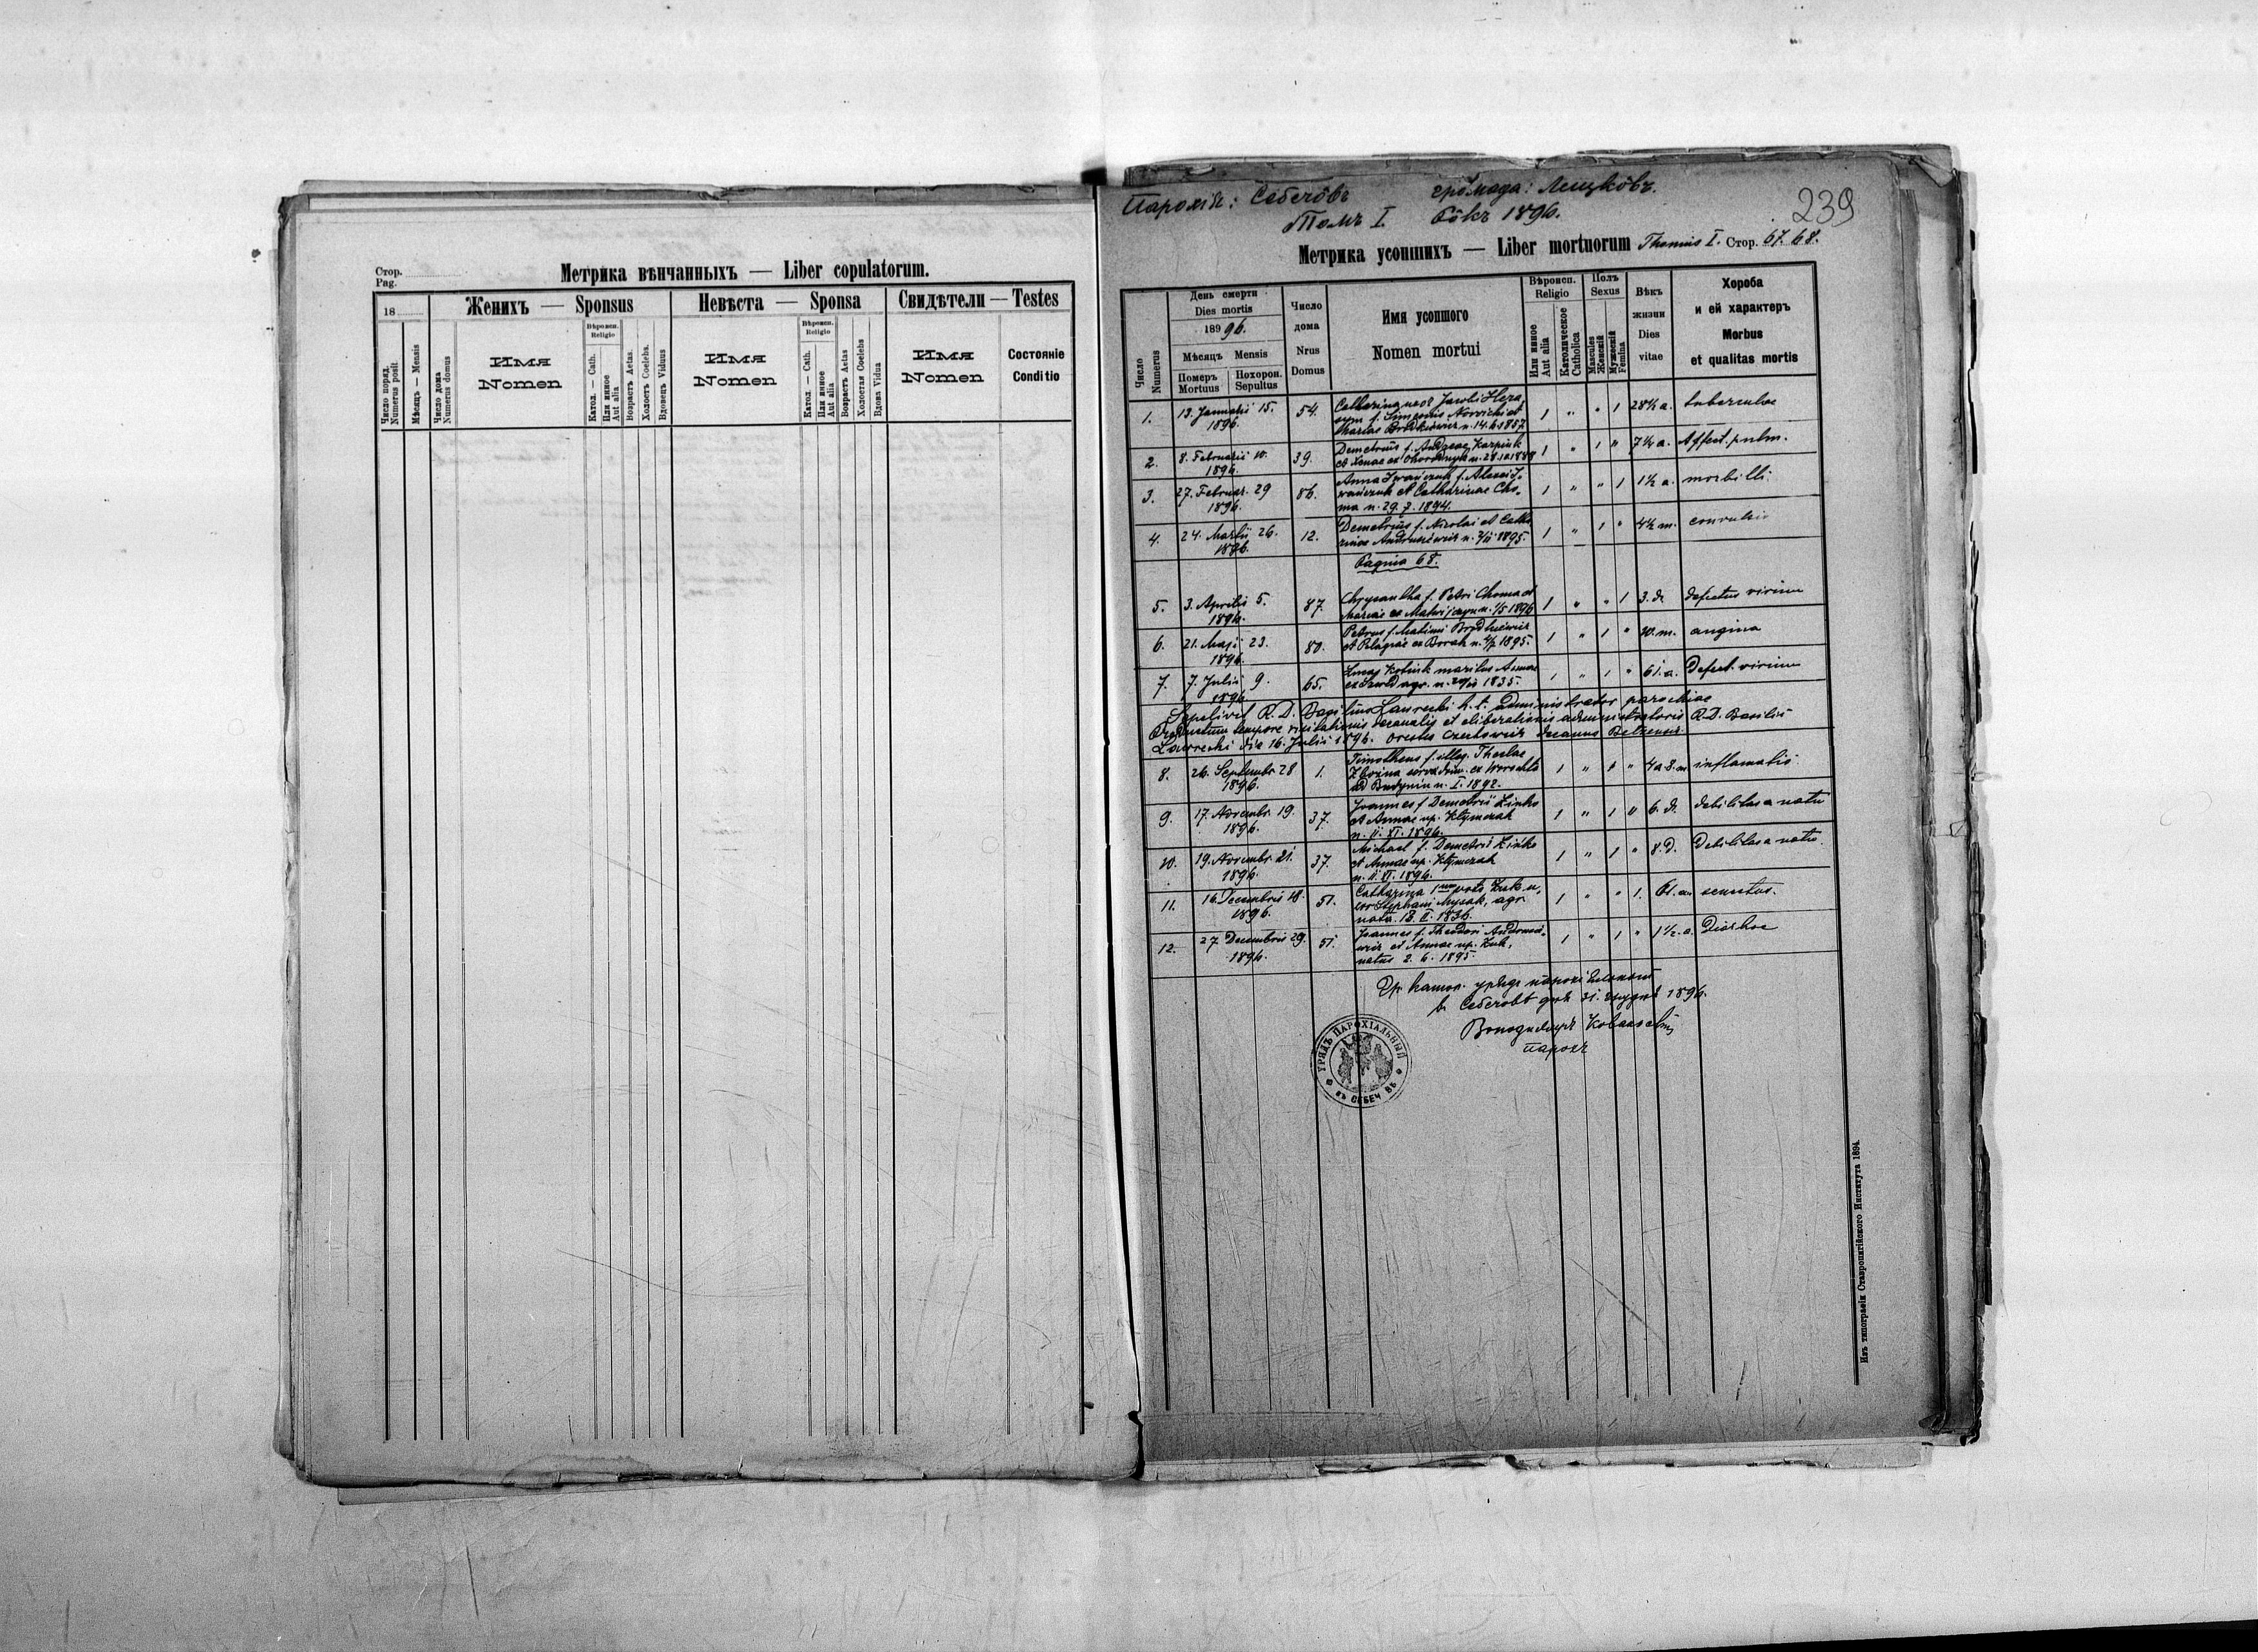 Стор.
Pag.
Метрика вѣнчанныхъ — Liber copulatorum.
18
Женихъ — Sponsus
Невѣста — Sponsa
Свидѣтели — Testes
Число поряд.
Numerus posit
Мѣсяцъ — Mensis
Число дома
Numerus domus
Имя
Nomen
Вѣроисп.
Religio
Катол. — Cath.
Или инное
Aut alia
Возрастъ Aetas.
Холостъ Coelebs.
Вдовецъ Viduus
Имя
Nomen
Вѣроисп.
Religio
Катол. — Cath.
Или инное
Aut alia
Возрастъ Aetas
Холостая Coelebs
Вдова Vidua
Имя
Nomen
Состояніе
Conditio
Парохія: Себечôвъ громада: Лещкôвъ.
Томъ I. Рôкъ 1896.
239
Метрика усопшихъ — Liber mortuorum Thomus I. Стор. 67. 68.
Число
Numerus
День смерти
Dies mortis
189 96.
Мѣсяцъ Mensis
Померъ
Mortuus
Похорон.
Sepultus
Число
дома
Nrus
Domus
Имя усопшого
Nomen mortui
Вѣроисп.
Religio
Или инное
Aut alia
Католическое
Catholica
Полъ
Sexus
Mascules
Женскій
Мужескій
Femina
Вѣкъ
жизни
Dies
vitae
Хороба
и ей характеръ
Morbus
et qualitas mortis
1. 13. Januarii 15. 54. Catharina uxor Jacobi Hera, 1 " " 1 28½ a. tuberculoe
1896. Mariae Brodkiewicz n. 14. 6 1857
2. 8. Februarii 10. 39. Demetrius f. Andreae Karpiuk 1 " 1 " 7½ a. Affect. pulm.
1896.
3. 27. Februar. 29 86. Anna Iwańczuk f. Alexii I- 1 " " 1 1½ a. morbilli
1896. wańczuk et Catharinae Cho-
ma n. 29. 7. 1894.
4. 24. Martii 26. 12. Demetrius f. Nicolai et Catha 1 " 1 " 4½ m. convulsio
1896. 1895
Pagina 68.
5. 3. Aprilis 5. 87. Chrysantha f. Petri Choma et 1 " " 1 3. d. defectus virium
1896. Mariae 1896
6. 21. Maji 23. 80. Petrus f. 1 " 1 " 10. m. angina
1896. et Pelagiae ex Borak n. 1895.
7. 7. Julii 9. 65. Lucas Kobiuk maritus Annae 1 " 1 " 61. a. Defect. virium
1896 agr. n. 1835.
Sepelivit R. D. Basilius Lawrecki h. t. administrator parochiae
Productum tempore visitationis decanalis et eliberationis administratoris R. D. Basilii
Lawrecki die 16. Julii 1896. Orestes Czertowicz decanus Belzensis
8. 26. Septembr. 28 1. Timotheus f. illeg. Theclae 1 " 1 " 4 a 8. m inflamatio
1896. n. I. 1892.
9. 17. Novembr. 19. 37. Joannes f Demetrii Zinko 1 " 1 " 6. d. debilitas a natu
1896. et Annae np. Klymczak
n. 11. XI. 1896.
10. 19. Novembr. 21. 37. Michael f. Demetrii Zinko 1 " 1 " 8. D. Debilitas a natu
1896. et Annae np. Klymczak
n. 11. XI. 1896.
11. 16 Decembris 18. 51. Catharina 1mo voto Zuk u, 1 " " 1. 61. a. senectus.
1896. xor Stephani Mysak, agr.
nata. 18. 1836.
12. 27 Decembris 29. 51. Joannes f. Theodori Andrusie- 1 " 1 " 1½. a. Diarhoe
1896. wicz et Annae np. Zuk,
natus 2. 6. 1895.
Гр. катол. урядъ парохіяльный
въ Себечовѣ дня 31. грудня 1896.
Володимиръ Ковалевъ
парохъ
УРЯДЪ ПАРОХІАЛЬНЫЙ
въ СЕБЕЧ ВѢ
Изъ типографіи Ставропигійского Института 1894.